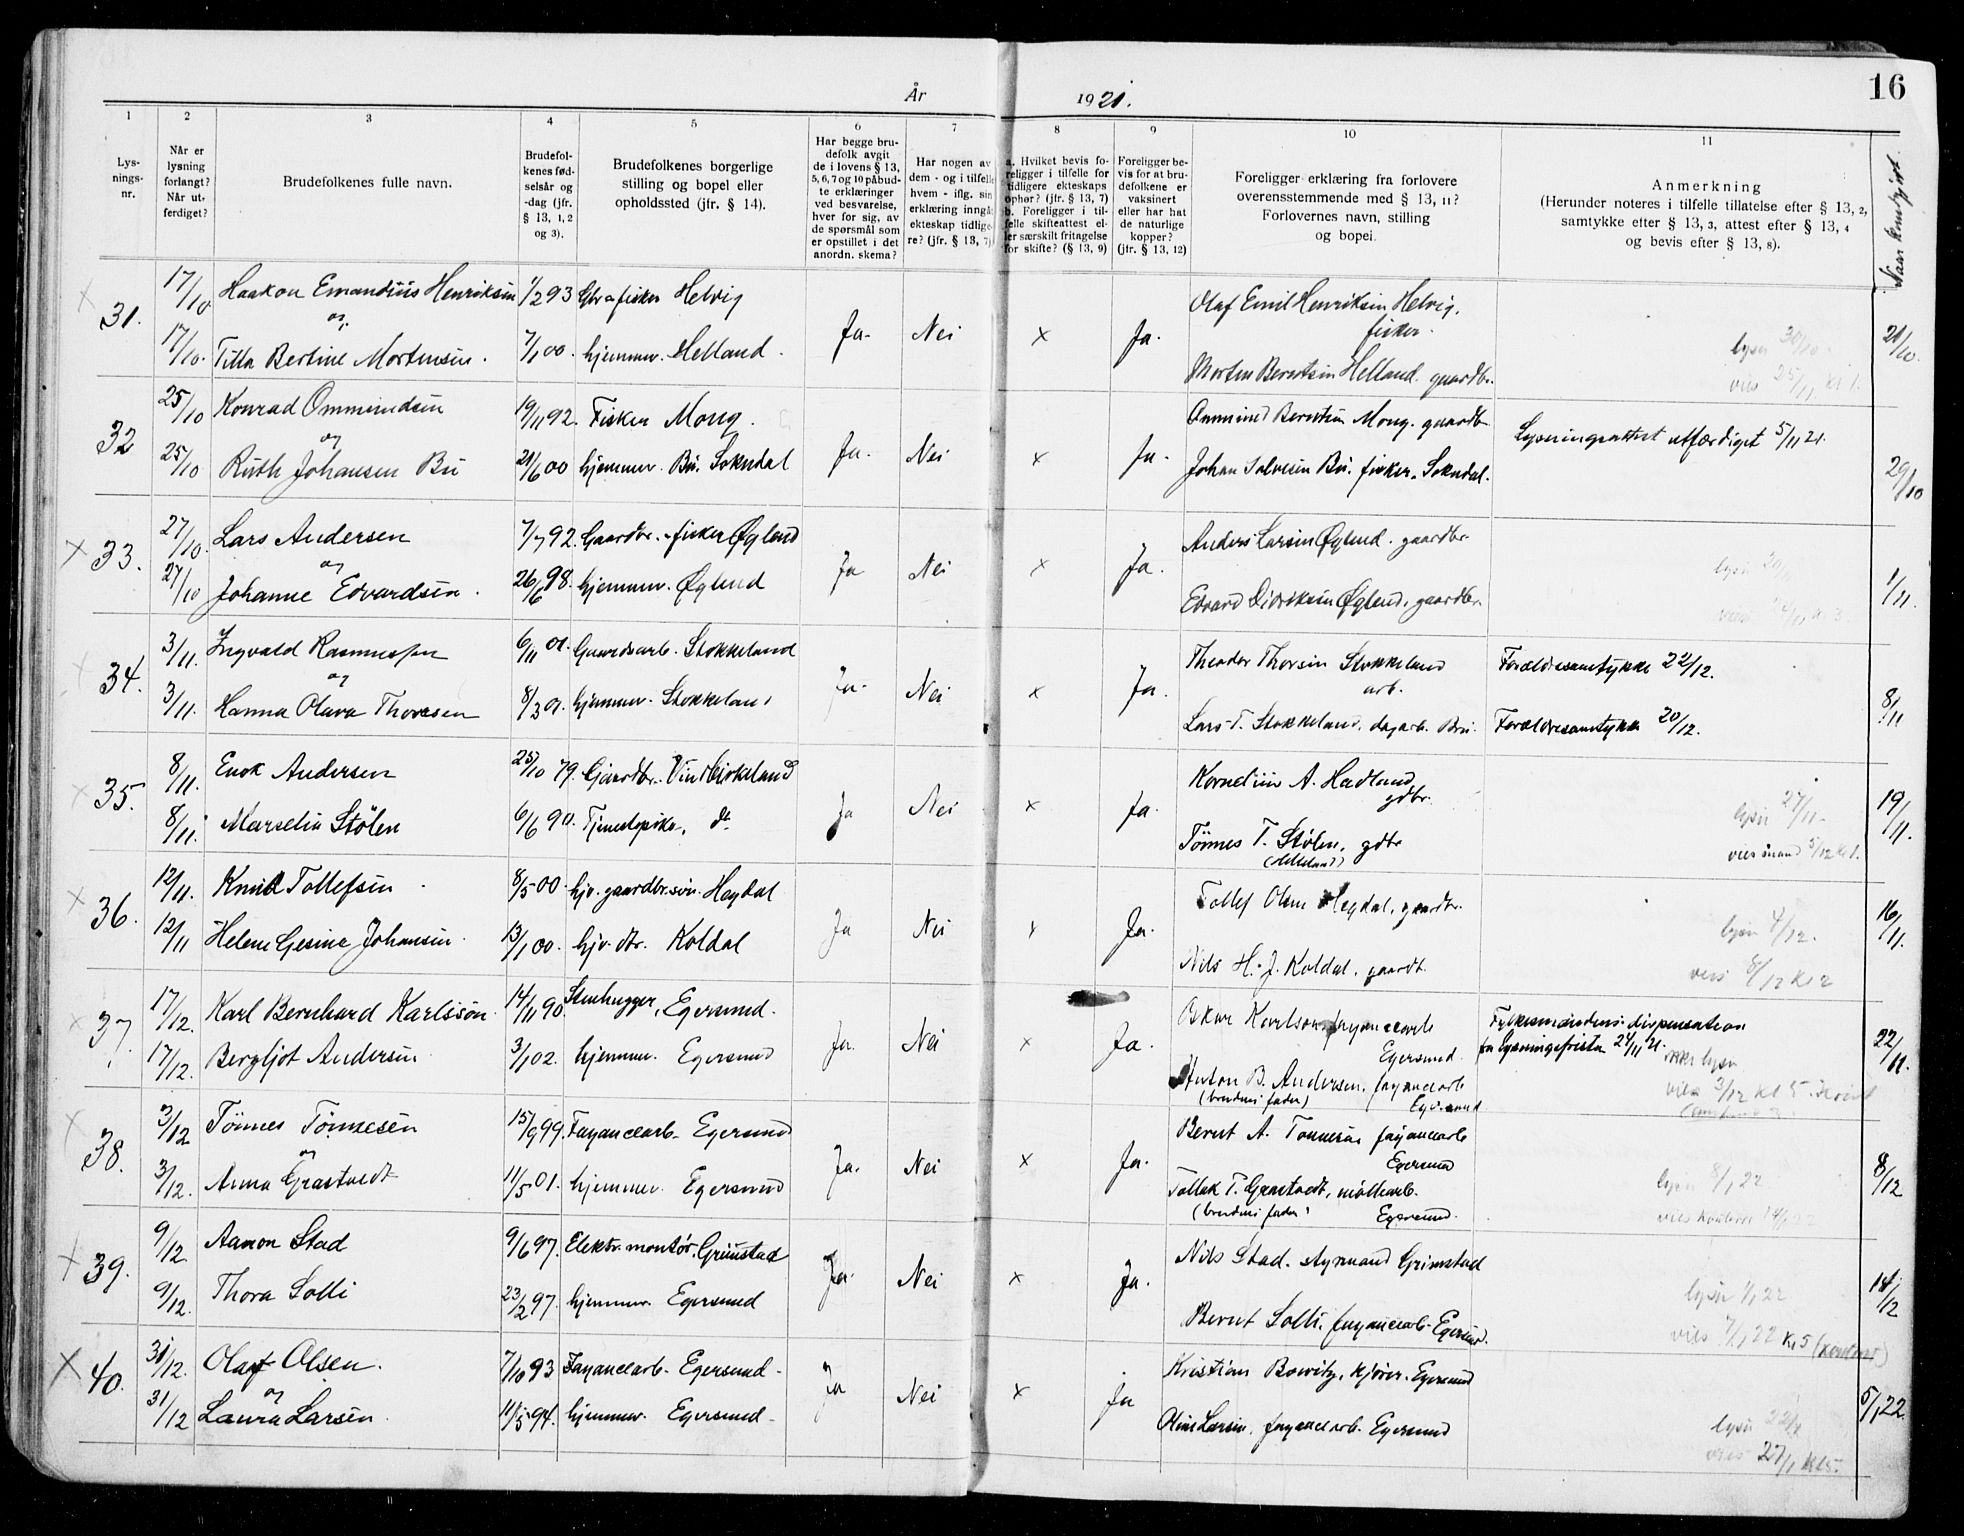 År 1921.
16
1 2 3 4 5 6 7 8 9 10 11
Lysningsnr.
Når er lysning forlangt? Når utferdiget?
Brudefolkenes fulle navn.
Brudefolkenes fødselsår og -dag (jfr. § 13, 1, 2 og 3).
Brudefolkenes borgerlige stilling og bopel eller opholdssted (jfr. § 14).
Har begge brudefolk avgit de i lovens § 13, 5, 6, 7 og 10 påbudte erklæringer ved besvarelse, hver for sig, av de spørsmål som er opstillet i det anordn. skema?
Har nogen av dem - og i tilfelle hvem - iflg. sin erklæring inngåt ekteskap tidligere? (jfr. § 13, 7)
a. Hvilket bevis foreligger i tilfelle for tidligere ekteskaps ophør? (jfr. § 13, 7) b. Foreligger i tilfelle skifteattest eller særskilt fritagelse for skifte? (§ 13, 9)
Foreligger bevis for at brudefolkene er vaksinert eller har hat de naturlige kopper? (jfr. § 13, 12)
Foreligger erklæring fra forlovere overensstemmende med § 13, 11? Forlovernes navn, stilling og bopel.
Anmerkning (Herunder noteres i tilfelle tillatelse efter § 13, 2, samtykke efter § 13, 3, attest efter § 13, 4 og bevis efter § 13, 8).
Naar kundgjort.
31. 17/10 Haakon Emandius Henriksen 1/2 93 Gbr. fisker Helvig Ja- Nei x Ja. Olaf Emil Henriksen Helvig. fisker.
og
17/10. Tilla Bertine Mortensen. 7/1 00. hjemmev. Helland. Morten Berntsen Helland. gaardbr. lyser 30/10 vies 25/11 kl 1. 21/10.
32 25/10 Konrad Ommundsen 19/11 92. Fisker Mong. Ja. Nei x Ja. Ommund Berntsen Mong. gaardbr. Lysningsattest utfærdiget 5/11 21.
og
25/10 Ruth Johansen Bu 21/6 00 hjemmev. Bu. Sokndal Johan Salvesen Bu. fisker. Sokndal. 29/10
33. 27/10. Lars Andersen 7/7 92. Gaardbr. - fisker Øglend Ja Nei x Ja. Anders Larsen Øglend. gaardbr.
og
27/10 Johanne Edvardsen. 26/6 98. hjemmev. Øglend Edvard Didriksen Øglend, gaardbr. 1/11.
34. 3/11. Ingvald Rasmussen 6/11 01. Gaardsarb. Stokkeland Ja- Nei x Ja. Theodor Thorsen Stokkeland arb. Forældresamtykke 22/12.
og
3/11. Hanna Olava Thoresen 8/3 01. hjemmev. Stokkeland Lars T. Stokkeland. dagarb. Bru. Forældresamtykke 20/12. 8/11
35. 8/11. Enok Andersen 25/10 79. Gaardbr. Vindbirkeland Ja Nei x Ja. Kornelius A. Hadland gdbr.
8/11. Marselia Stölen 6/6 90. Tjenestepike, do Tönnes T. Stölen, gdbr (Helleland) lyser 27/11. vies 5/12 kl 1. 19/11.
36. 12/11. Knud Tollefsen 8/5 00 hjv. gaardbr.søn. Hegdal Ja Nei x Ja. Tollef Olsen Hegdal, gaardbr.
12/11 Helene Gesine Johansen. 13/1 00. hjv. dtr. Koldal Nils H. J. Koldal, gaardb. lyser 4/12. vies 8/12 kl 2 16/11.
37. 17/12. Karl Bernhard Karlssön. 14/11 90. Stenhugger, Egersund. Ja. Nei x Ja. Oskar Karlson, fayancearb Egersund. Fylkesmandens dispensation fra lysningsfristen 24/11 21.
17/12. Bergljot Andersen 3/1 02. hjemmev. Egersund Anton B. Andersen, fayancearb (brudens fader) Egersund ikke lyser vies 3/12 kl 5. 22/11.
38. 3/12 Tönnes Tönnesen 15/9 99. Fayancearb. Egersund Ja. Nei x Ja. Bernt A. Tönnesen fayancearb Egersund
og
3/12. Anna Grastvedt 11/5 01. hjemmev. Egersund Tollak T. Grastvedt, møllearb. (brudens fader) Egersund. lyser 8/1 22 8/12
39. 9/12 Aanon Stad 9/6 97. Elektr. montör. Grimstad Ja. Nei x Ja. Nils Stad. styrmand Grimstad
9/12. Thora Solli 23/2 97. hjemmev. Egersund Bernt Solli, fayancearb. Egersund. lyser 1/1 22 vies 7/1 22 kl 5 14/12
40. 31/12. Olaf Olsen. 7/10 93 Fayancearb. Egersund - Ja Nei x Ja Kristian Bowitz, kjörer. Egersund
og
31/12 Laura Larsen. 11/5 94. hjemmev. Egersund - Larsen, fayancearb. Egersund lyser 22/1 vies 27/1 kl 5. 5/1 22.